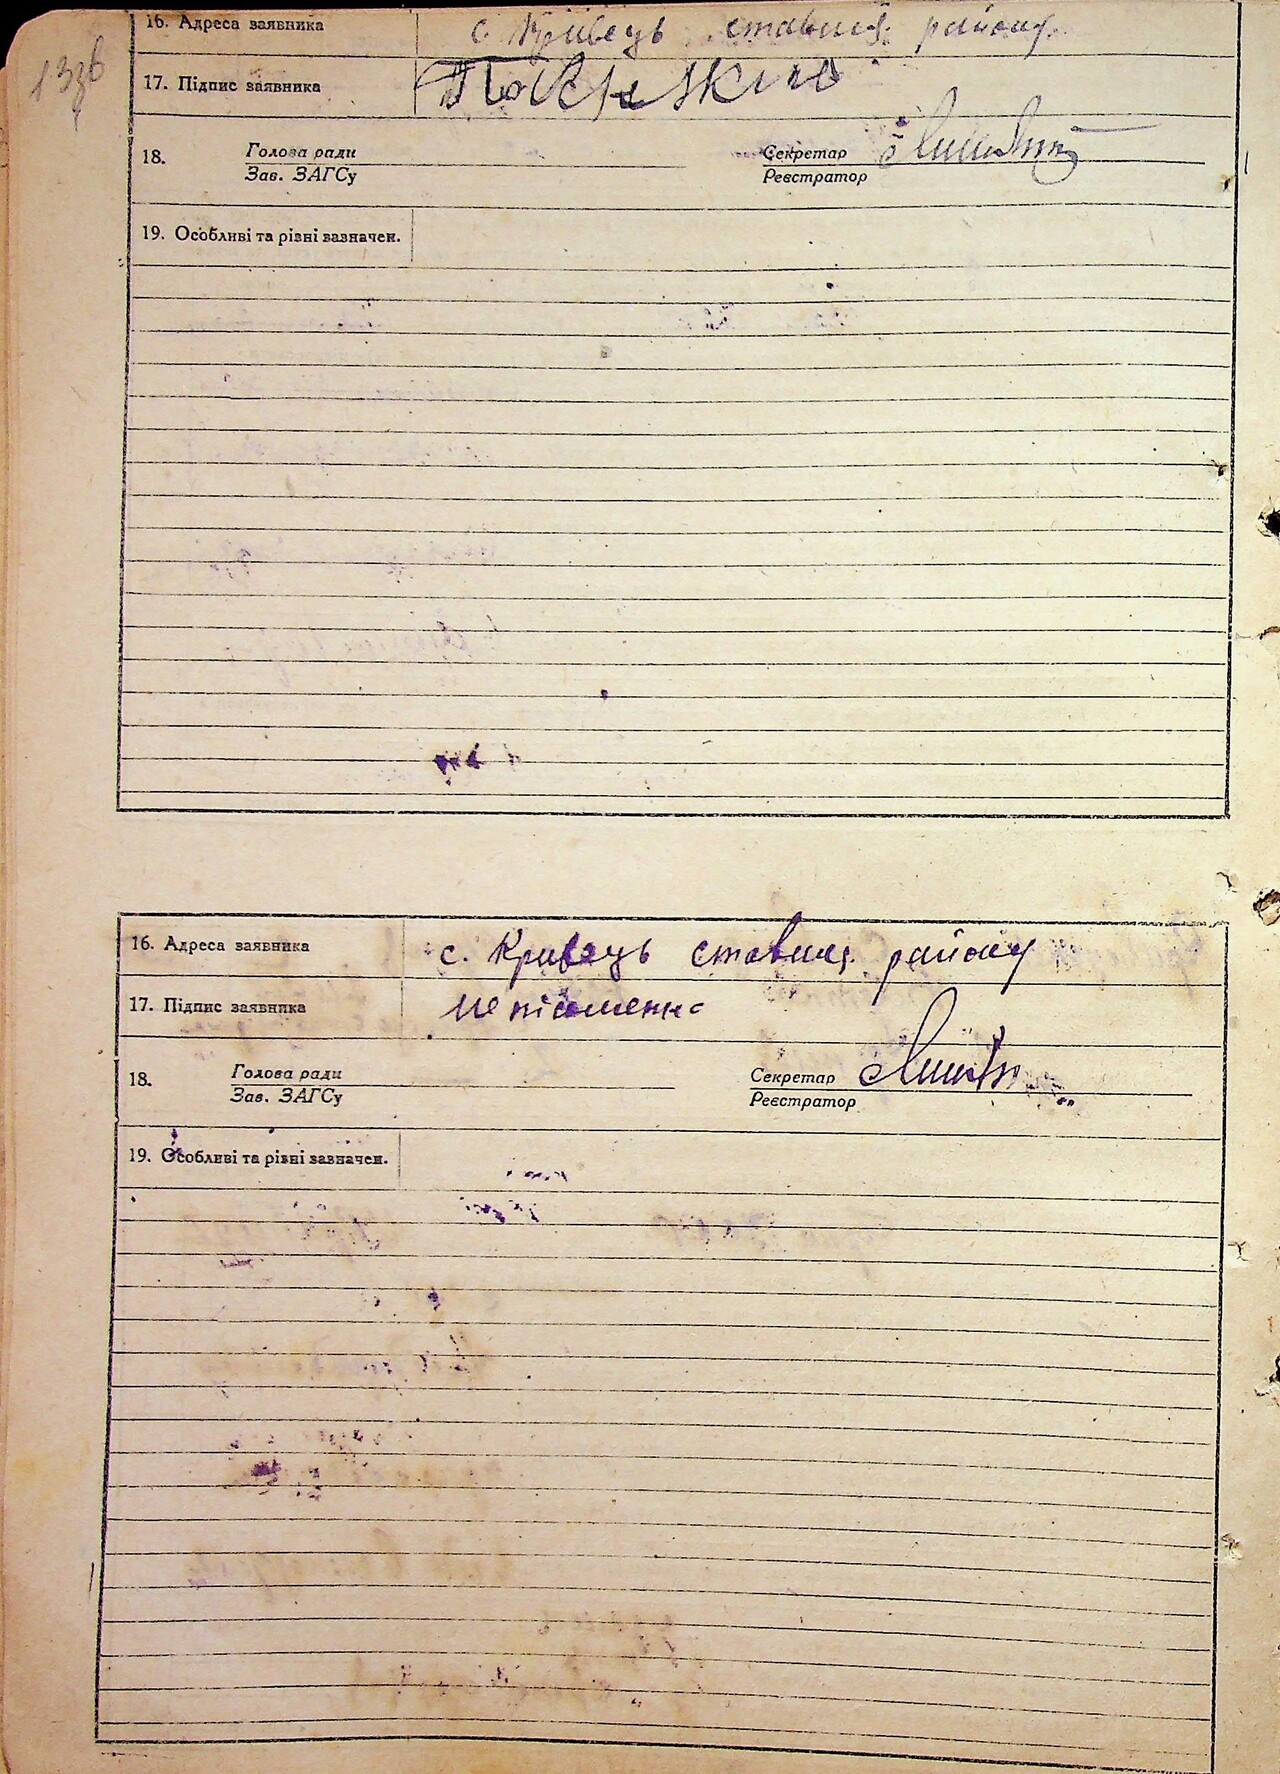 16. Адреса заявника с. Кривець ставищ. району
17. Підпис заявника
18. Голова ради Секретар
Зав. ЗАГСу Реєстратор
19. Особливі та різні зазначен.
16. Адреса заявника с. Кривець ставищ. району
17. Підпис заявника неписьменна
18. Голова ради Секретар
Зав. ЗАГСу Реєстратор
19. Особливі та різні зазначен.